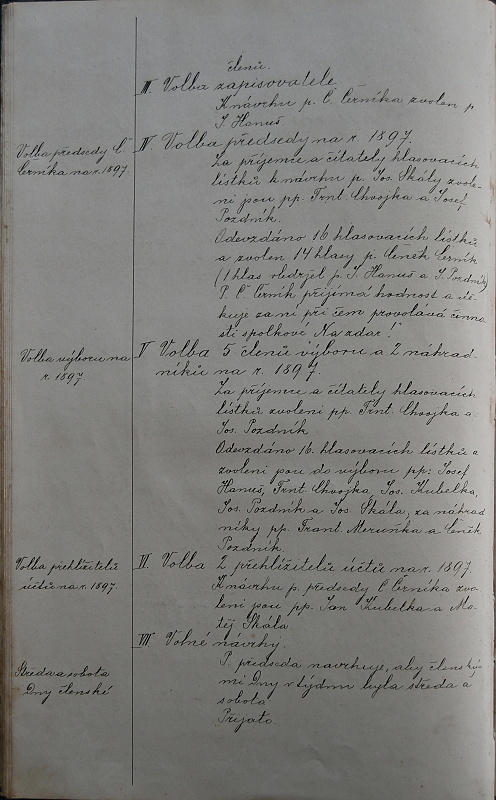 členů.
III. Volba zapisovatele
K návrhu p. Č. Černíka zvolen p
J. Hanuš
Volba předsedy Č.
Černíka na r. 1897.
IV Volba předsedy na r. 1897.
Za příjemce a čítately hlasovacích
lístků k návrhu p. Jos. Skály zvole-
ni jsou pp. Frnt. Chvojka a Josef
Pozdník.
Odevzdáno 16 hlasovacích lístků
a zvolen 14 hlasy p. Čeněk Černík
(1 hlas obdržel p. J. Hanuš a J. Pozdník)
P. Č. Černík přijímá hodnost a dě-
kuje za ni při čem provolává činno
sti spolkové Na zdar!
Volba výboru na
r. 1897.
V Volba 5 členů výboru a 2 náhrad-
níků na r. 1897.
Za příjemce a čítately hlasovacích
lístků zvoleni pp. Frnt. Chvojka a
Jos. Pozdník
Odevzdáno 16. hlasovacích lístků a
zvoleni jsou do výboru pp: Josef
Hanuš, Frnt. Chvojka, Jos. Kubelka,
Jos. Pozdník a Jos. Skála; za náhrad
níky pp. Frant. Meruňka a Čeněk
Pozdník.
Volba přehlížitelů
účtů na r. 1897.
VI. Volba 2 přehlížitelů účtů na r. 1897.
K návrhu p. předsedy Č Černíka zvo-
leni jsou pp. Jan Kubelka a Ma-
těj Skála
VII. Volné návrhy.
Středa a sobota
dny členské
P. předseda navrhuje, aby členský-
mi dny v týdnu byla středa a
sobota
Přijato.